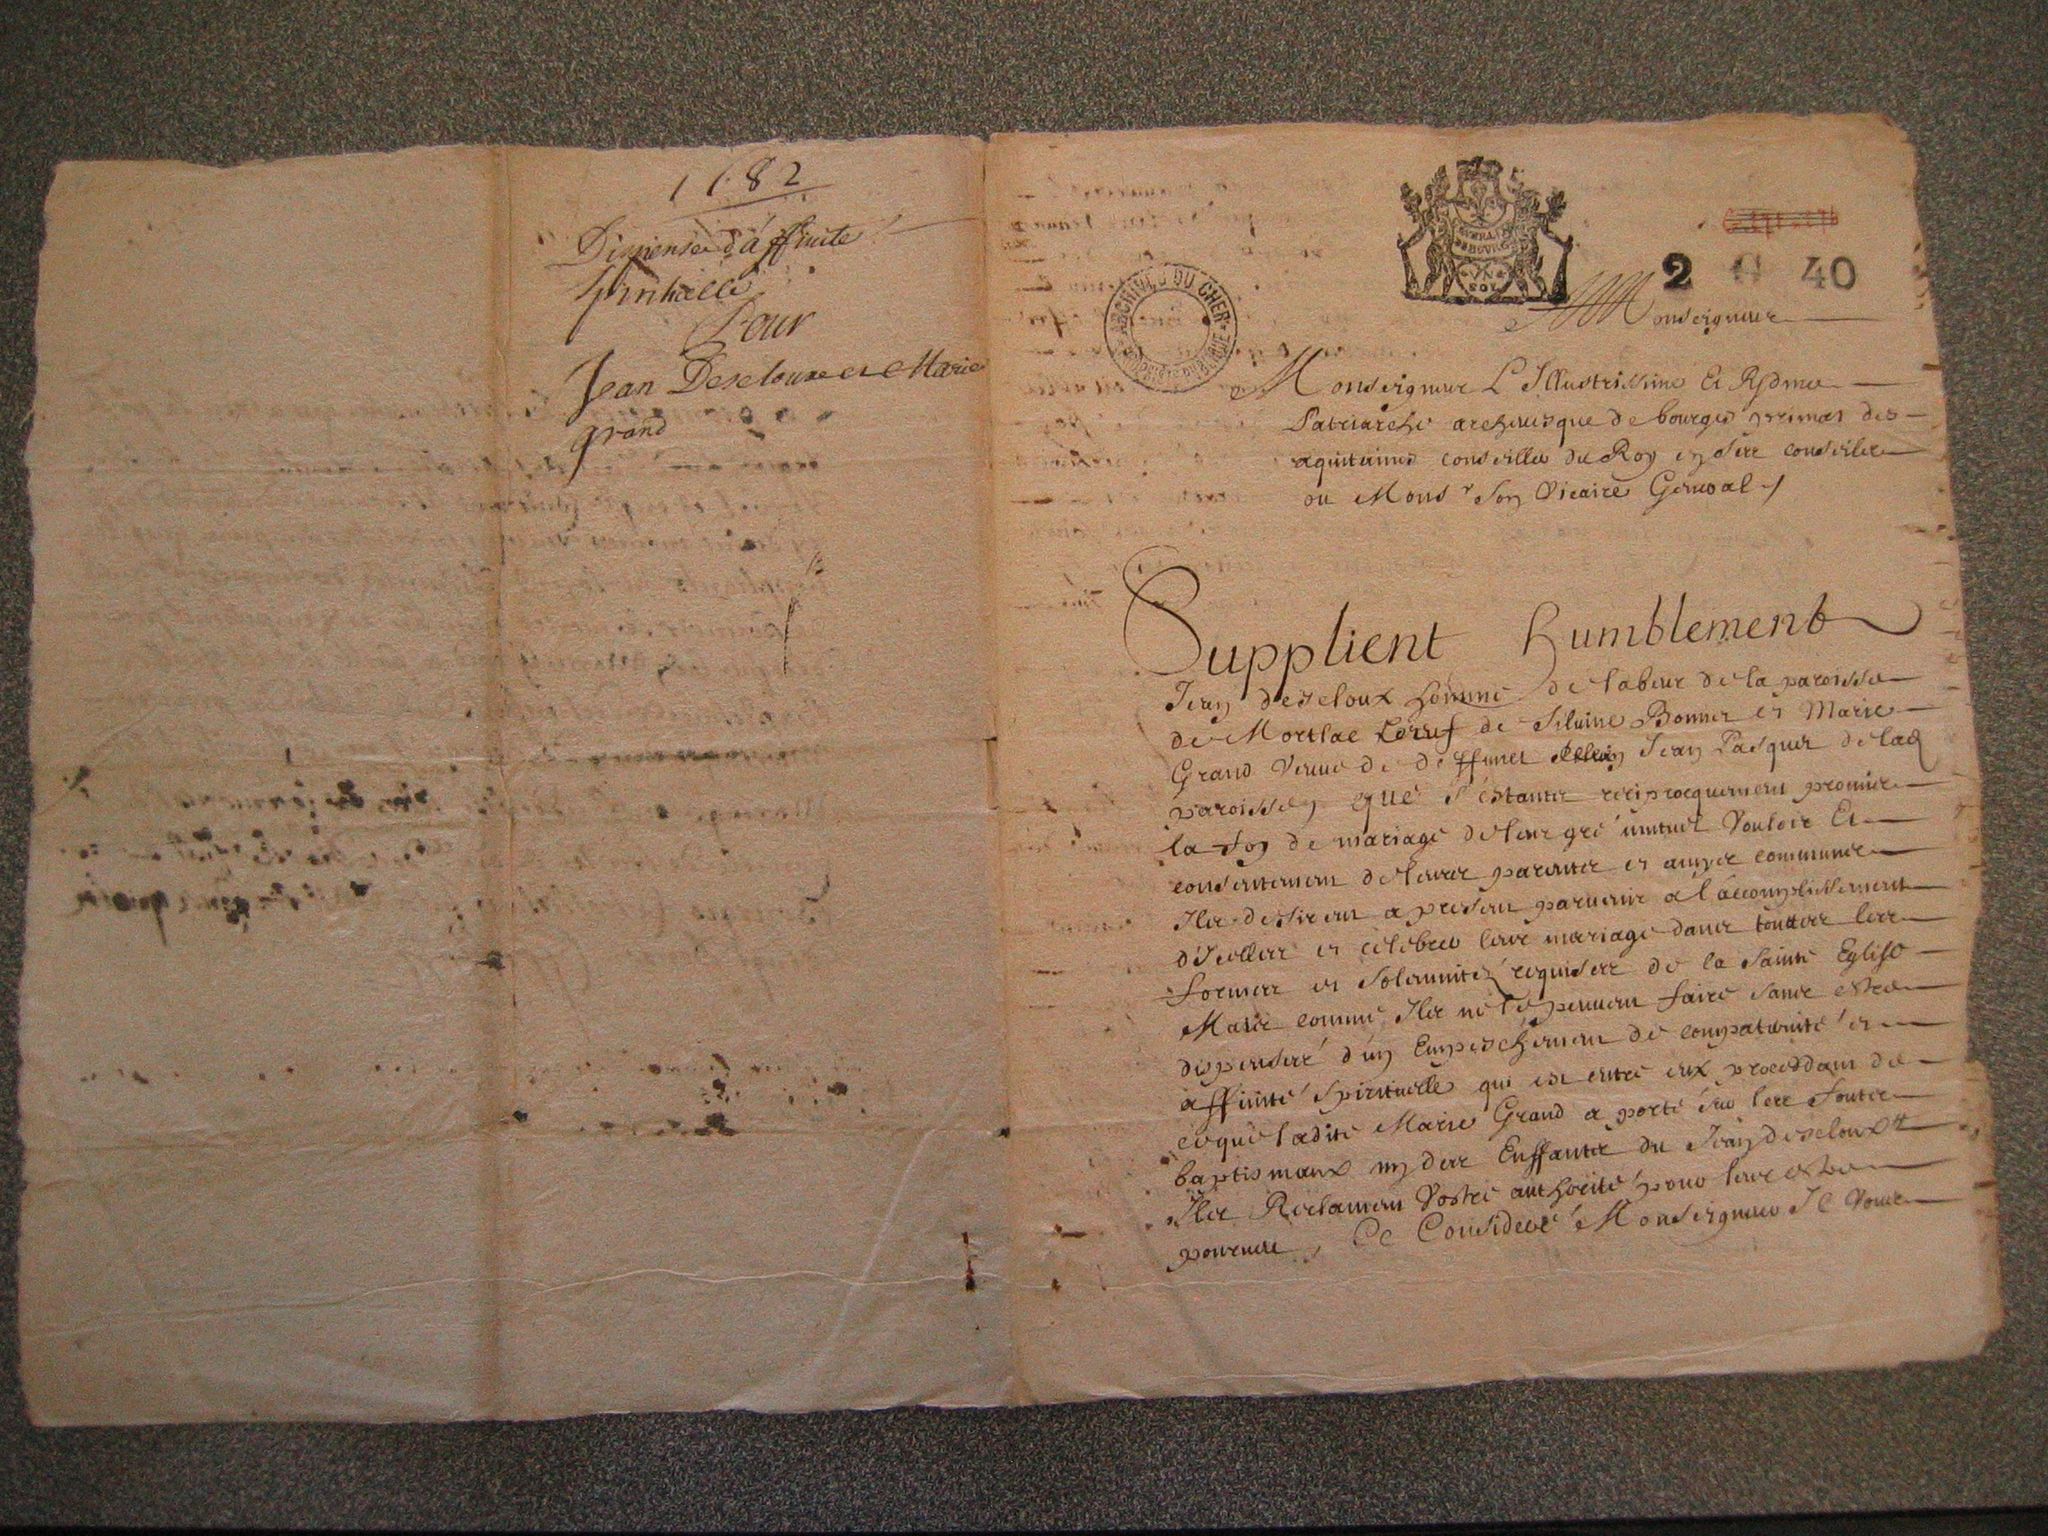 1682
Dispense d'affinite
spirituelle
Pour
Jean Descloux et Marie
grand
ARCHIVES DU CHER
2 40
Monseigneur
Monseigneur L'Illustrissime Et
Patriarche archeuesque de bourges primat des
aquitaines conseiller du Roy en ses conseilz
ou Mons^r son Vicaire General
Supplient humblement
Jean descloux homme de labeur de la paroisse
de Morlac de Siluine Bonnet et Marie
Grand veuue de deffunct Jean Pasquet de lad
paroisse que s'estants reciproquement promis
la foy de mariage de leur gré mutuel vouloir Et
consentement de leurs parents et amys communs
Ils desirent a present paruenir a l'accomplissement
d'icelluy et celebrer leur mariage dans touttes les
formes et solemnités requises de la Sainte Eglise
Mais comme Ils ne le peuuent faire sans estre
dispensés d'un Empeschement de compaternité et
affinité spirituelle qui est entre eux procedant de
ce que ladite Marie Grand a porté sur les fonts
baptismaux un des Enffants du Jean descloux
Ils Reclament Vostre authorité pour leur estre
pourueu, Ce Consideré Monseigneur Il vous